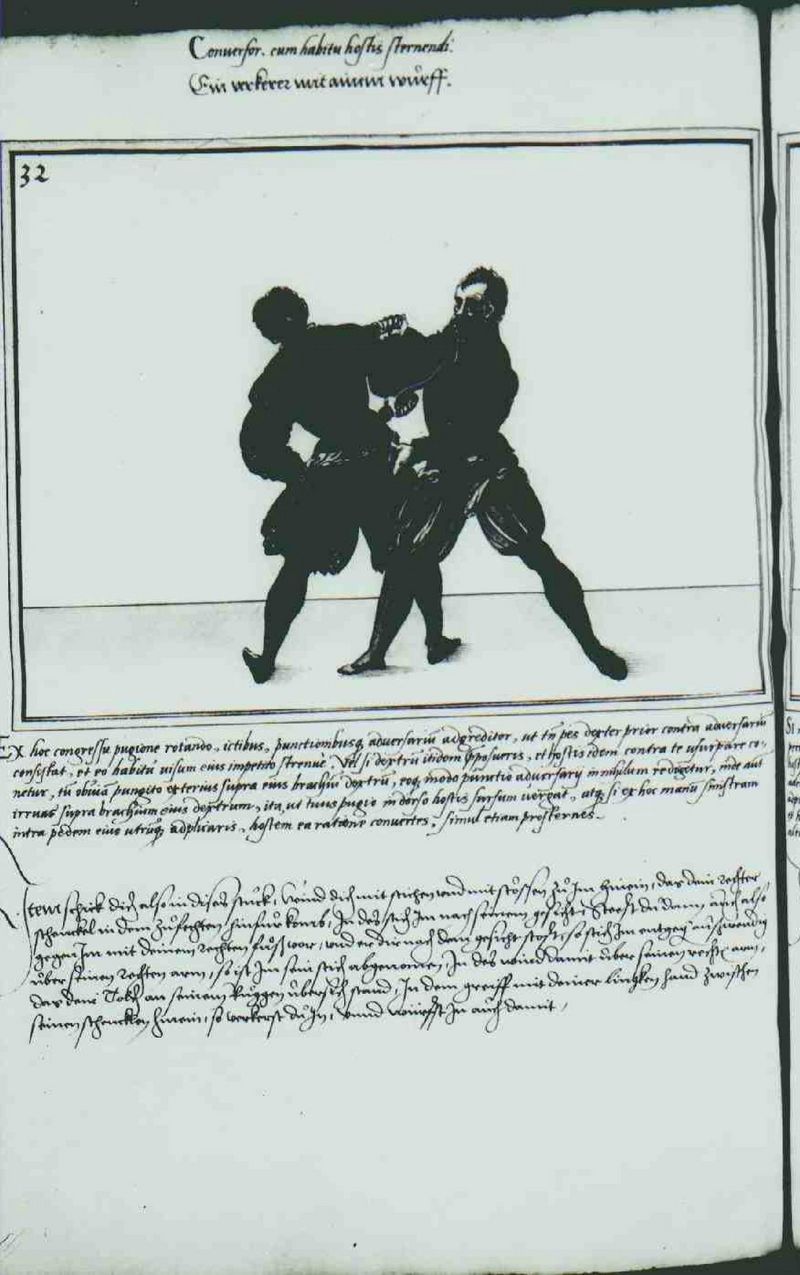 Conversor. cum habitu hostis sternendi.
Ein verkerer mit ainem wůrff.
32
Ex hoc congressu pugione rotando, ictibus, punctionibusq; adversariũ adgreditor, ut tñ pes dexter prior contra adversariũ
consistat, et eo habitu visum eius impetito strenuè. Vel si dextrũ itidem pposueris, et hostis idem contra te usurpare co-
netur, tũ obviã pungito exterius supra eius brachiũ dextrũ, eoq; modo punctio adversarij in nihilum redigetur, inde aut
irruas supra brachium eius dextrum, ita, ut tuus pugio in dorso hostis sursum vergat, atq; si ex hoc manũ sinistram
intra pedem eius utrũq; adplicaris, hostem ea ratione convertes, simul etiam prosternes.
Item schick dich also in dises stuck, Wind dich mit stichen und mit stössen zů Im hinein, das dein rechter
schenckel in dem zůfechten hinfur komb, In des stich Im nach seinem gesicht, Steest du dann auch also
gegen Im mit deinem rechten fůß vor, und er dir nach dem gesicht sticht, so stich Im entgegen außwendig
über seinen rechten arm, so ist Im sein stich abgenomen, In des wind damit über seinen rechten arm,
das dein Tolch an seinem Ruggen übersich stand, In dem greiff mit deiner lincken hand zwischen
seinen schenckeln hinein, so verkerst du In, unnd würffst In auch damit,